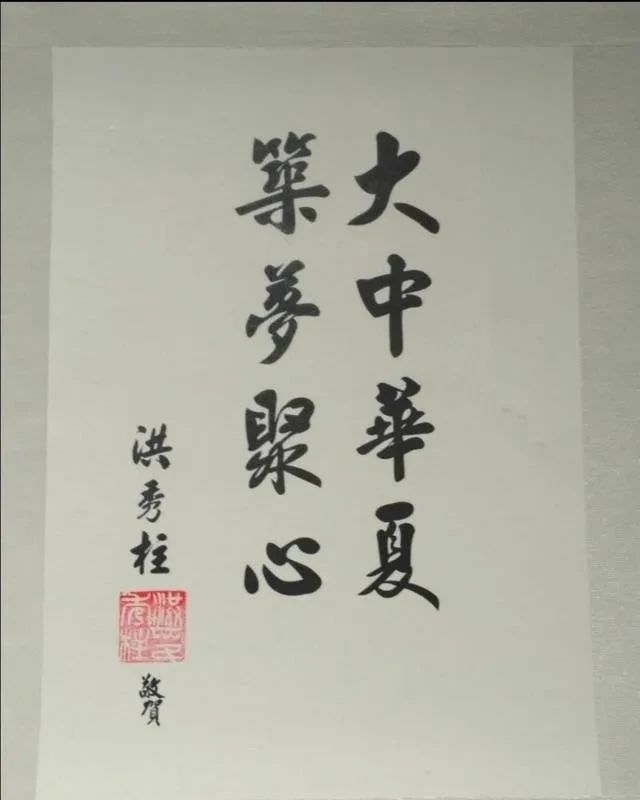 大中華夏
築夢聚心
洪秀柱
敬賀